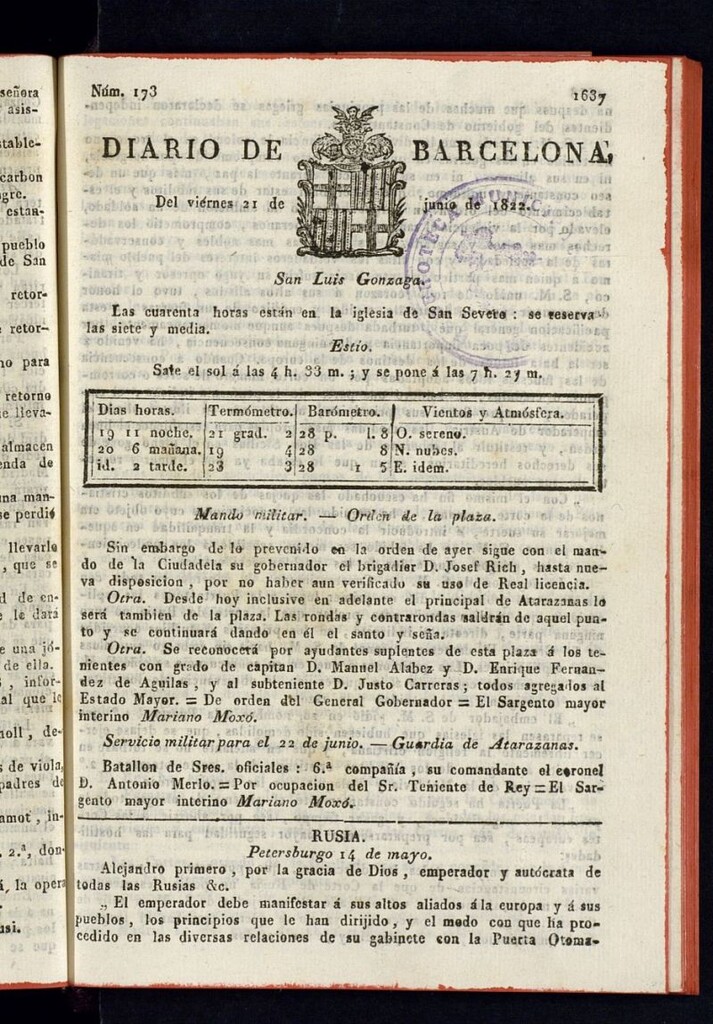 señora
asis-
stable-
carbon
gre.
estan-
pueblo
de San
retor-
retor-
no para
retorno
e lleva-
almacen
enda de
na man-
se perdió
llevarlo
, que se
d de en-
e le dará
e una jó-
de ella.
s , infor-
al que le
noll , de-
s de viola,
padres de
amot , in-
. 2.ª, don-
á, la opera
asi.
Núm. 173 1637
DIARIO DE BARCELONA,
Del viérnes 21 de junio de 1822.
San Luis Gonzaga.
Las cuarenta horas están en la iglesia de San Severo : se reserva
á las siete y media.
Estio.
Sale el sol á las 4 h. 33 m. ; y se pone á las 7 h. 27 m.
Dias horas. Termómetro. Barómetro. Vientos y Atmósfera.
19 11 noche. 21 grad. 2 28 p. l. 8 O. sereno.
20 6 mañana. 19 4 28 8 N. nubes.
id. 2 tarde. 23 3 28 1 5 E. idem.
Mando militar. — Orden de la plaza.
Sin embargo de lo prevenido en la orden de ayer sigue con el man-
do de la Ciudadela su gobernador el brigadier D. Josef Rich , hasta nue-
va disposicion , por no haber aun verificado su uso de Real licencia.
Otra. Desde hoy inclusive en adelante el principal de Atarazanas lo
será tambien de la plaza. Las rondas y contrarondas saldrán de aquel pun-
to y se continuará dando en él el santo y seña.
Otra. Se reconocerá por ayudantes suplentes de esta plaza á los te-
nientes con grado de capitan D. Manuel Alabez y D. Enrique Fernan-
dez de Aguilas , y al subteniente D. Justo Carreras ; todos agregados al
Estado Mayor. = De orden del General Gobernador = El Sargento mayor
interino Mariano Moxó.
Servicio militar para el 22 de junio. — Guardia de Atarazanas.
Batallon de Sres. oficiales : 6.ª compañía , su comandante el coronel
D. Antonio Merlo. = Por ocupacion del Sr. Teniente de Rey = El Sar-
gento mayor interino Mariano Moxó.
RUSIA.
Petersburgo 14 de mayo.
Alejandro primero , por la gracia de Dios , emperador y autócrata de
todas las Rusias &c.
„ El emperador debe manifestar á sus altos aliados á la europa y á sus
pueblos , los principios que le han dirijido , y el modo con que ha pro-
cedido en las diversas relaciones de su gabinete con la Puerta Otoma-